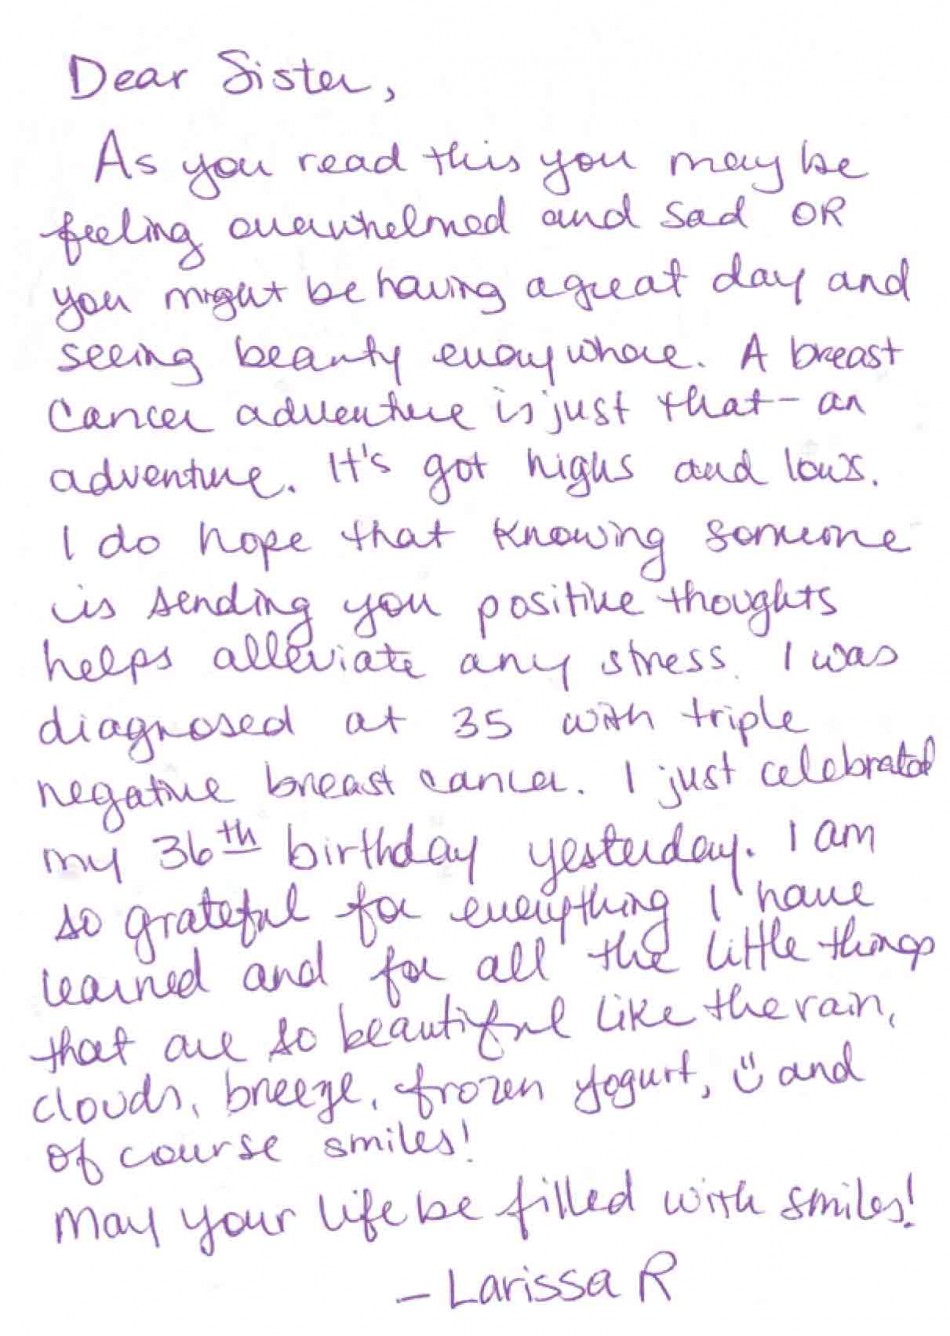 Dear Sister,
As you read this you may be
feeling overwhelmed and sad OR
you might be having a great day and
seeing beauty everywhere. A breast
Cancer adventure is just that - an
adventure. It's got highs and lows.
I do hope that knowing someone
is sending you positive thoughts
helps alleviate any stress. I was
diagnosed at 35 with triple
negative breast cancer. I just celebrated
my 36th birthday yesterday. I am
so grateful for everything I have
learned and for all the little things
that are so beautiful like the rain,
clouds, breeze, frozen yogurt, ☺ and
of course smiles!
May your life be filled with smiles!
- Larissa R